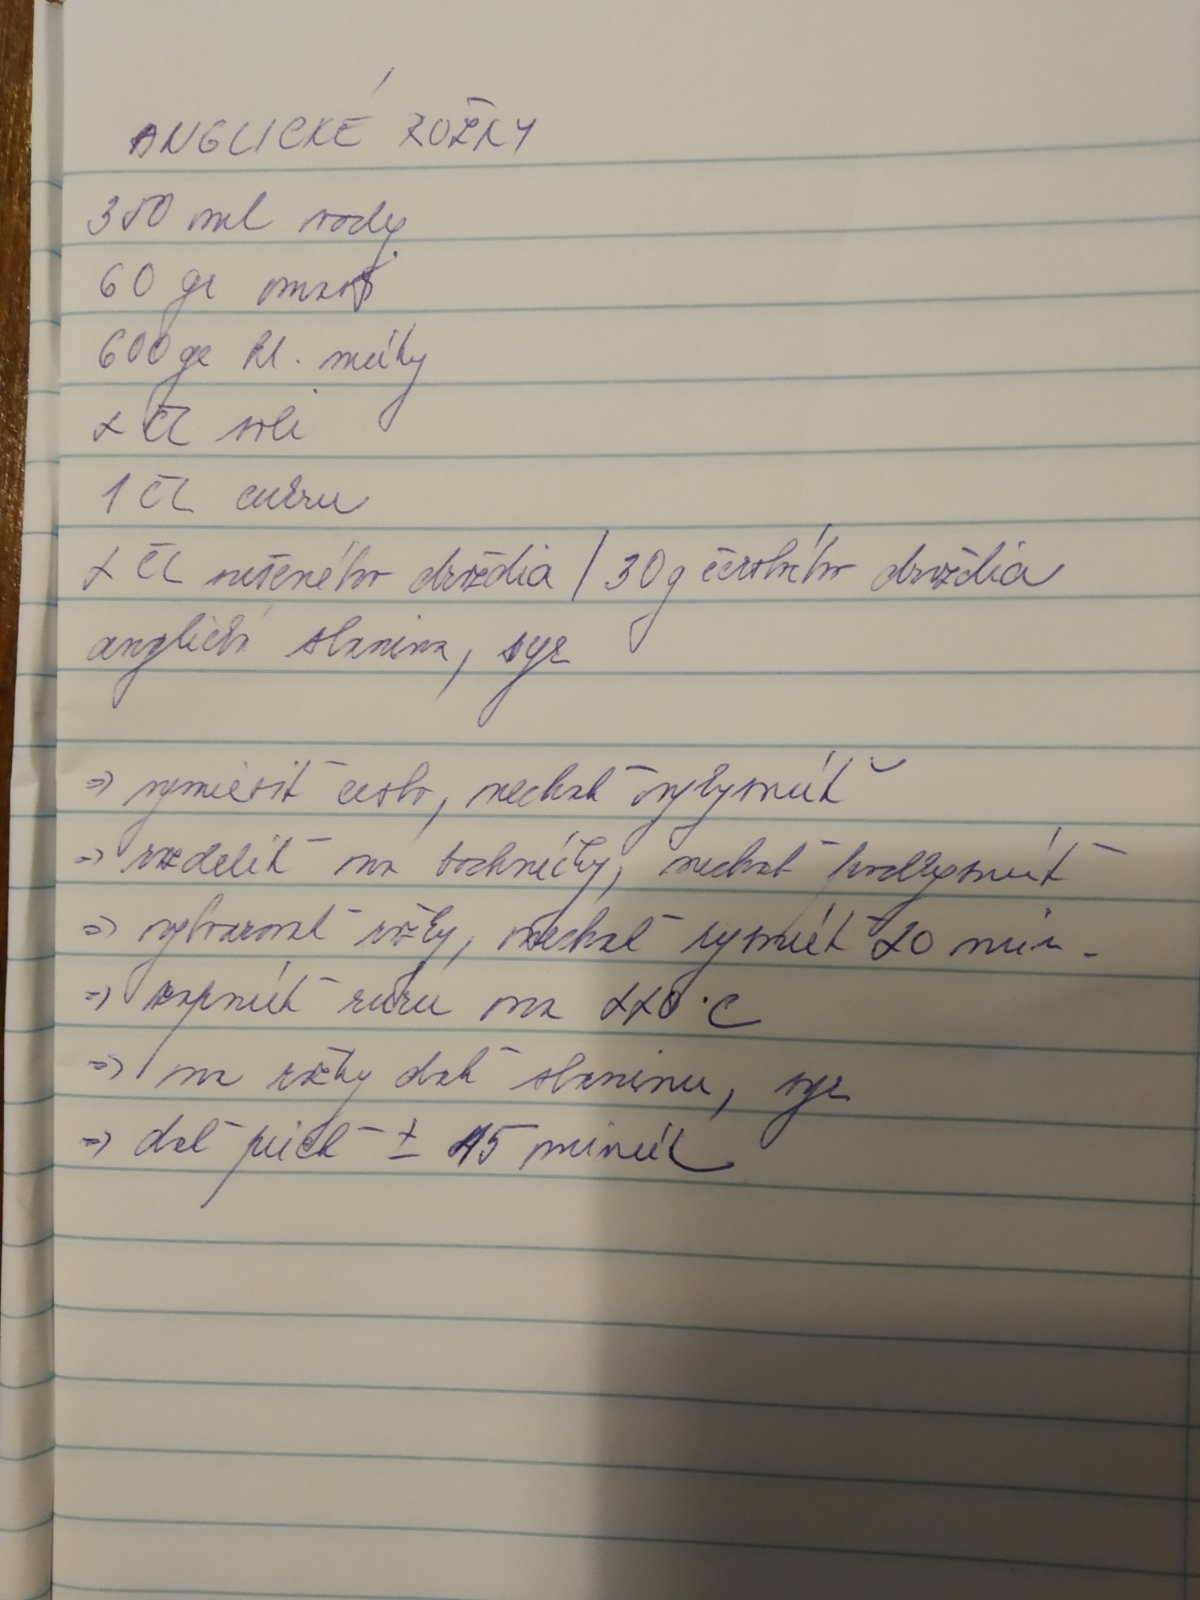 ANGLICKÉ ROŽKY
350 ml vody
60 gr masti
600 gr hl. múky
2 ČL soli
1 ČL cukru
2 ČL sušeného droždia / 30g čerstvého droždia
anglická slanina, syr
=> vymiesiť cesto, nechať vykysnúť
=> rozdeliť na bochníčky, nechať podkysnúť
=> vytvarovať rožky, nechať kysnúť 20 min.
=> zapnúť rúru na 220°C
=> na rožky dať slaninu, syr
=> dať piecť ± 15 minút